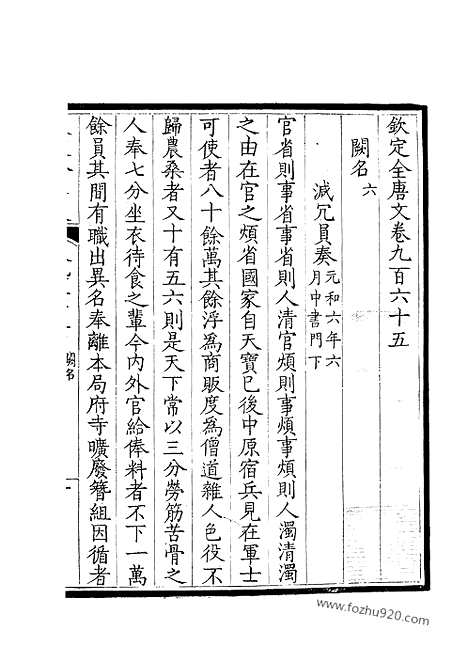 欽定全唐文卷九百六十五
闕名六
減冗員奏元和六年六
月中書門下
官省則事省事省則人清官煩則事煩事煩則人濁清濁
之由在官之煩省國家自天寶已後中原宿兵見在軍士
可使者八十餘萬其餘浮爲商販度爲僧道雜人色役不
歸農桑者又十有五六則是天下常以三分勞筋苦骨之
人奉七分坐衣待食之輩今內外官給俸料者不下一萬
餘員其間有職出異名奉離本局府寺曠廢簪組因循者
闕名
一
www.fozhu920.com